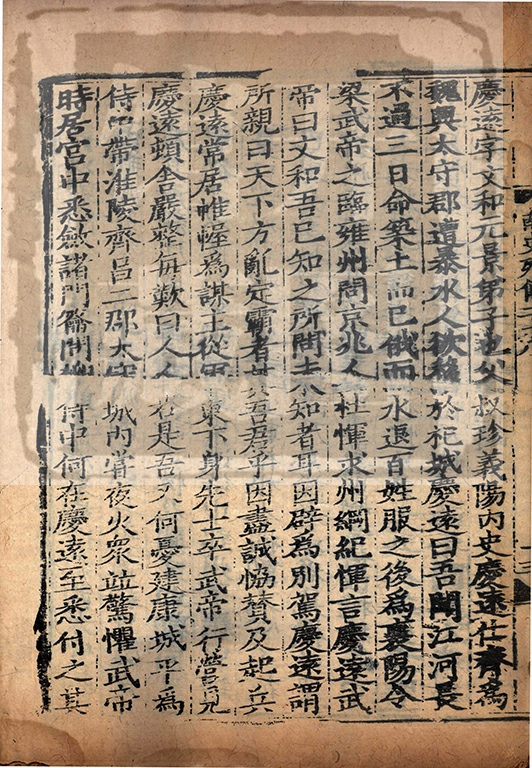 慶遠字文和元景弟子也父叔珍義陽內史慶遠仕齊爲
魏興太守郡遭暴水人欲移於祀城慶遠曰吾聞江河長
不過三日命築土而已俄而水退百姓服之後爲襄陽令
梁武帝之臨雍州問京兆人杜惲求州綱紀惲言慶遠武
帝曰文和吾已知之所問未知者耳因辟為別駕慶遠謂
所親曰天下方亂定霸者其吾君乎因盡誠協賛及起兵
慶遠常居帷幄爲謀主從軍東下身先士卒武帝行營見
慶遠頓舍嚴整每歎曰人人若是吾又何憂建康城平爲
侍中帶淮陵齊昌二郡太守城內嘗夜火衆竝驚懼武帝
時居宮中悉斂諸門籥問柳侍中何在慶遠至悉付之其